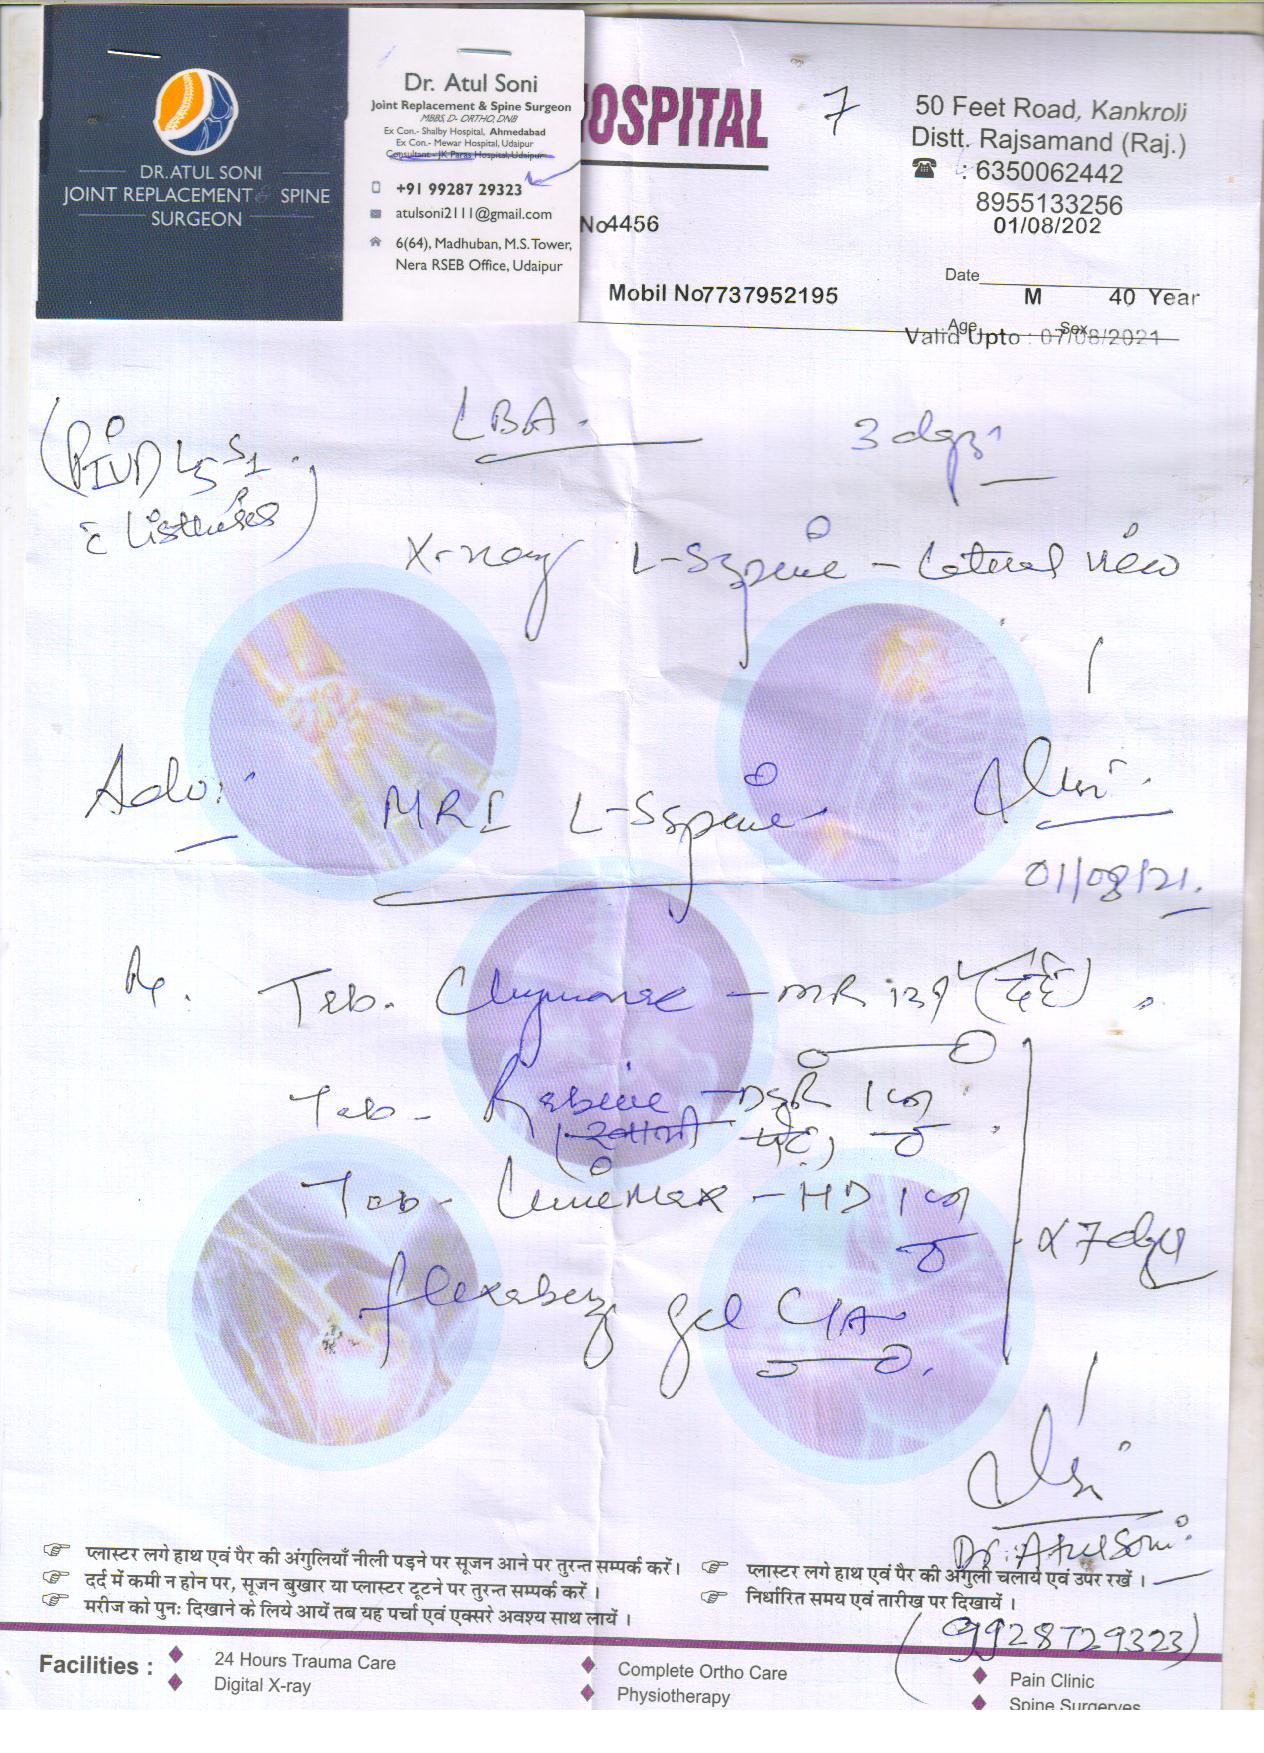 Dr. Atul Soni
Joint Replacement & Spine Surgeon
MBBS, D- ORTHO, DNB
Ex Con.- Shalby Hospital, Ahmedabad
Ex Con.- Mewar Hospital, Udaipur
Consultant - JK Paras Hospital, Udaipur
+91 99287 29323
atulsoni2111@gmail.com
6(64), Madhuban, M.S. Tower,
Nera RSEB Office, Udaipur
DR.ATUL SONI
JOINT REPLACEMENT & SPINE
SURGEON
HOSPITAL
7
50 Feet Road, Kankroli
Distt. Rajsamand (Raj.)
: 6350062442
8955133256
No4456
01/08/202
Date
Mobil No7737952195
M 40 Year
Age Sex
Valid Upto : 07/08/2021
LBA
3 days
(PIVD L5-S1
c̄ listhesis)
X-ray L-S spine - Lateral view
Adv:
MRI L-S spine
01/08/21.
Rx.
Tab. - MR (दर्द)
Tab - - DSR 1
(खाली पेट)
Tab - - HD 1
x 7 days
gel
Dr. Atul Soni
(9928729323)
प्लास्टर लगे हाथ एवं पैर की अंगुलियाँ नीली पड़ने पर सूजन आने पर तुरन्त सम्पर्क करें।
दर्द में कमी न होन पर, सूजन बुखार या प्लास्टर टूटने पर तुरन्त सम्पर्क करें ।
मरीज को पुनः दिखाने के लिये आयें तब यह पर्चा एवं एक्सरे अवश्य साथ लायें ।
प्लास्टर लगे हाथ एवं पैर की अंगुली चलायें एवं उपर रखें ।
निर्धारित समय एवं तारीख पर दिखायें ।
Facilities :
24 Hours Trauma Care
Digital X-ray
Complete Ortho Care
Physiotherapy
Pain Clinic
Spine Surgeryes